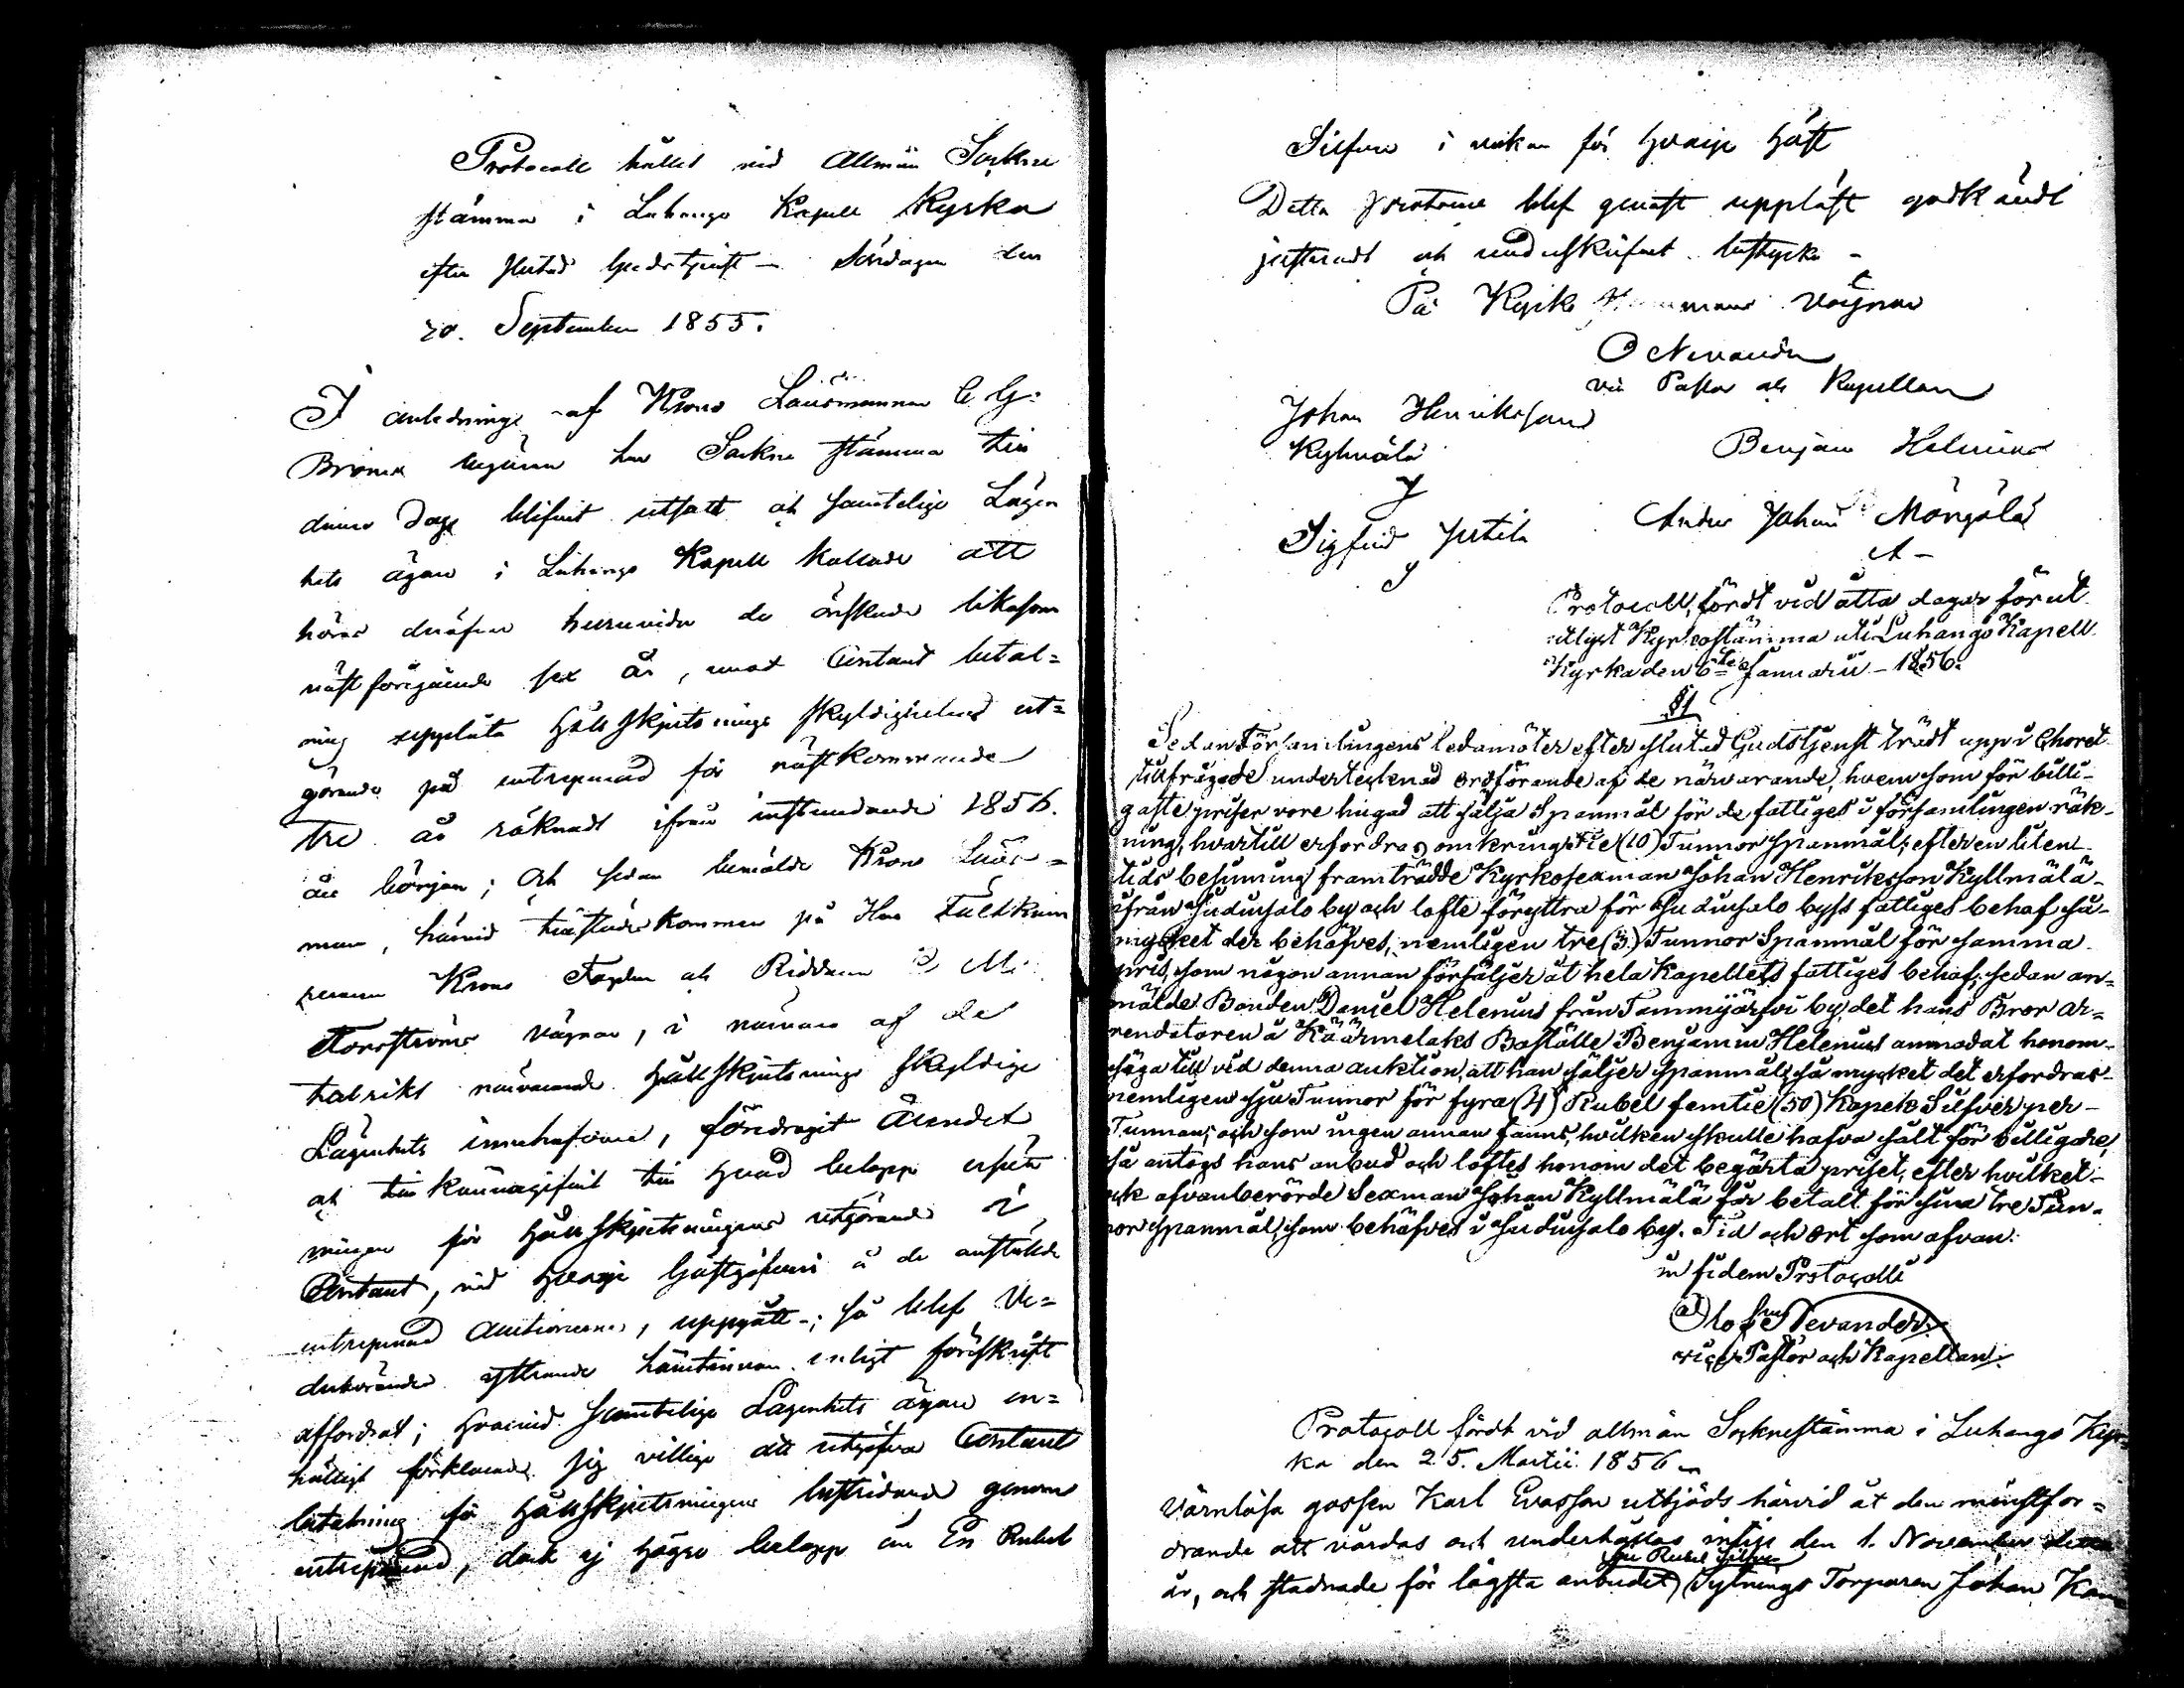 Protocoll hållet vid Allmän Sockne
stämma i Luhango Kapell Kyrka
efter slutad Gudstjenst – Söndagen den
30. September 1855.
I anledning af Krono Länsmannen C G.
Broms begäran har Sockne stämma till
denne dag blifvit utsatt och samtelige Lägen
hets ägare i Luhango Kapell kallade att
höras deröfver huruvida de önskade likasom
näst föregående sex år, emot Contant betal=
ning upplåta Hållskjutsnings skyldighetens ut=
görande på entreprenad för nästkommande
tre år räknadt ifrån instundande 1856.
års början; Och sedan bemälde Krono Läns=
man, härvid tillstädeskommen på Herr
Krono Fogden och Riddaren
Forsströms vägnar, i närvaro af de
talrikt närvarande Hållskjutsnings skyldige
Lägenhets innehafvare, föredragit Ärendet
och tillkännagifvit till hvad belopp ersätt
ningen för Hållskjutsningens utgörande i
Contant, vid hvarje Gästgifveri å de anstälde
entreprenad Auctionerne, uppgått –; så blef Ve=
derbörandes yttrande häröfver enligt föreskrift
affordrat; hvarvid samtelige Lägenhets ägare en=
hälligt förklarade sig villige att utgifva Contant
betalning för Hållskjutsningens bestridande genom
entreprenad, dock ej högre belopp än En Rubel
Silfver i veckan för hvarje Häst
Detta Protocoll blef genast uppläst godkändt
justeradt och underskrifvet. betygar –
På Kyrko Stämmans vägnar
O Nevander
vice Pastor och Kapellan
Johan Henriksson
Kyllmälä
Benjam Helenius
Sigfrid Jutila
Anders Johan
Protocoll, fördt vid åtta dagar förut
utlyst Kyrkostämma uti Luhango Kapell
Kyrka den 6te Januarii – 1856.
§1
Sedan Församlingens ledamöter efter slutad Gudstjenst trädt upp i Choret
tillfrågade undertecknad ordförande af de närvarande, hvem som för billi-
gaste priser vore hugad att sälja Spanmål för de fattiges i församlingen räk-
ning, hvartill erfordras omkring tie (10) Tunnor spanmål; efter en liten
tids besinning framträdde Kyrkosexman Johan Henriksson Kyllmälä
ifrån Judinsalo by och lofte föryttra för Judinsalo bys fattiges behof så
mycket der behöfves, nemligen tre (3) Tunnor Spanmål för samma
pris, som någon annan försäljer åt hela Kapellets fattiges behof; sedan an=
mälde Bonden Daniel Helenius från Tammijärfvi by, det hans Bror ar=
rendatoren å Käärmelaks Boställe Benjamin Helenius anmodat honom
säga till vid denna auktion, att han säljer spanmål så mycket det erfordras
nemligen sju Tunnor för fyra (4) Rubel femtie (50) Kopek Silfver per
Tunnan; och som ingen annan fanns, hvilken skulle hafva sålt för billigare,
så antogs hans anbud och loftes honom det begärta priset, efter hvilket
ock ofvanberörde Sexman Johan Kyllmälä får betalt för sina tre Tun-
nor spanmål, som behöfves i Judinsalo by. Tid och ort som ofvan.
in fidem Protocolli
Olof Nevander
vice Pastor och Kapellan.
Protocoll fördt vid allmän Socknestämma i Luhango Kyr=
ka den 25. Martii 1856
Värnlösa gossen Karl Evasson utbjöds härvid åt den minstfor=
drande att vårdas och underhållas intill den 1. November detta
år, och stadnade för lägsta anbudet Rubel Silfver Sytnings Torparen Johan